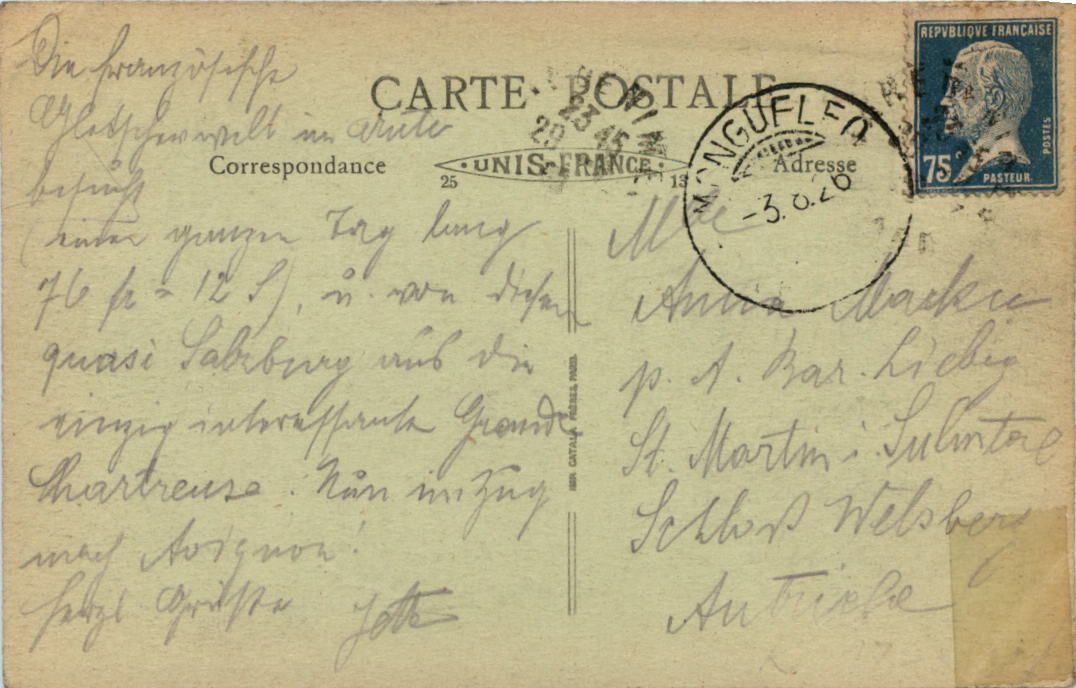 Die französische
Gletscherwelt im Auto
besucht
(einen ganzen Tag lang
76 fr = 12 S), u. von dieser
quasi Salzburg aus die
einzig interessante Grande
Chartreuse. Nun im Zug
nach Avignon!
herzl Grüße
CARTE POSTALE
Correspondance
·UNIS-FRANCE·
25
13
Adresse
MONGUELFO
-3.8.26
REPVBLIQVE FRANÇAISE
75c
POSTES
PASTEUR
IMP. CATALA FRÈRES, PARIS
Mlle
Anna
p. A. Bar. Liebig
St. Martin i. Sulmtal
Schloß Welsberg
Autriche